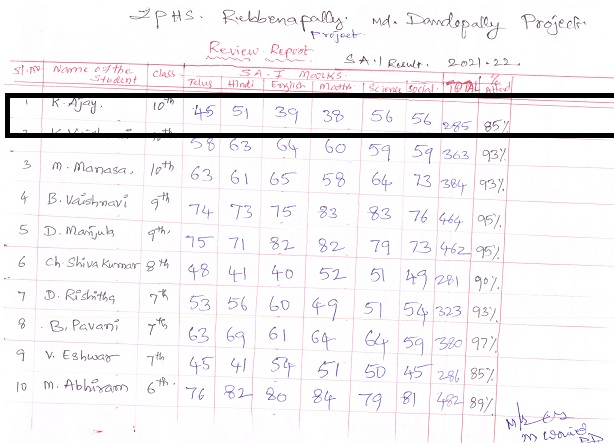 ZPHS. Rebbenapally. md. Dandepally Project.
Project
Review Report. S.A.1 Result. 2021-22.
S.A.I Marks.
Sl.No Name of the Student Class Telus Hindi English Maths Science Social TOTAL %
1 K. Ajay. 10th 45 51 39 38 56 56 285 85%
58 63 64 60 59 59 363 93%
3 M. Manasa. 10th 63 61 65 58 64 73 384 93%
4 B. Vaishnavi 9th 74 73 75 83 83 76 464 95%
5 D. Manjula 9th. 75 71 82 82 79 73 462 95%
6 Ch. Shiva Kumar 8th 48 41 40 52 51 49 281 90%
7 D. Rishitha 7th 53 56 60 49 51 54 323 93%
8 B. Pavani 7th 63 69 61 64 64 59 380 97%
9 V. Eshwar 7th 45 41 54 51 50 45 286 85%
10 M. Abhiram 6th. 76 82 80 84 79 81 482 89%